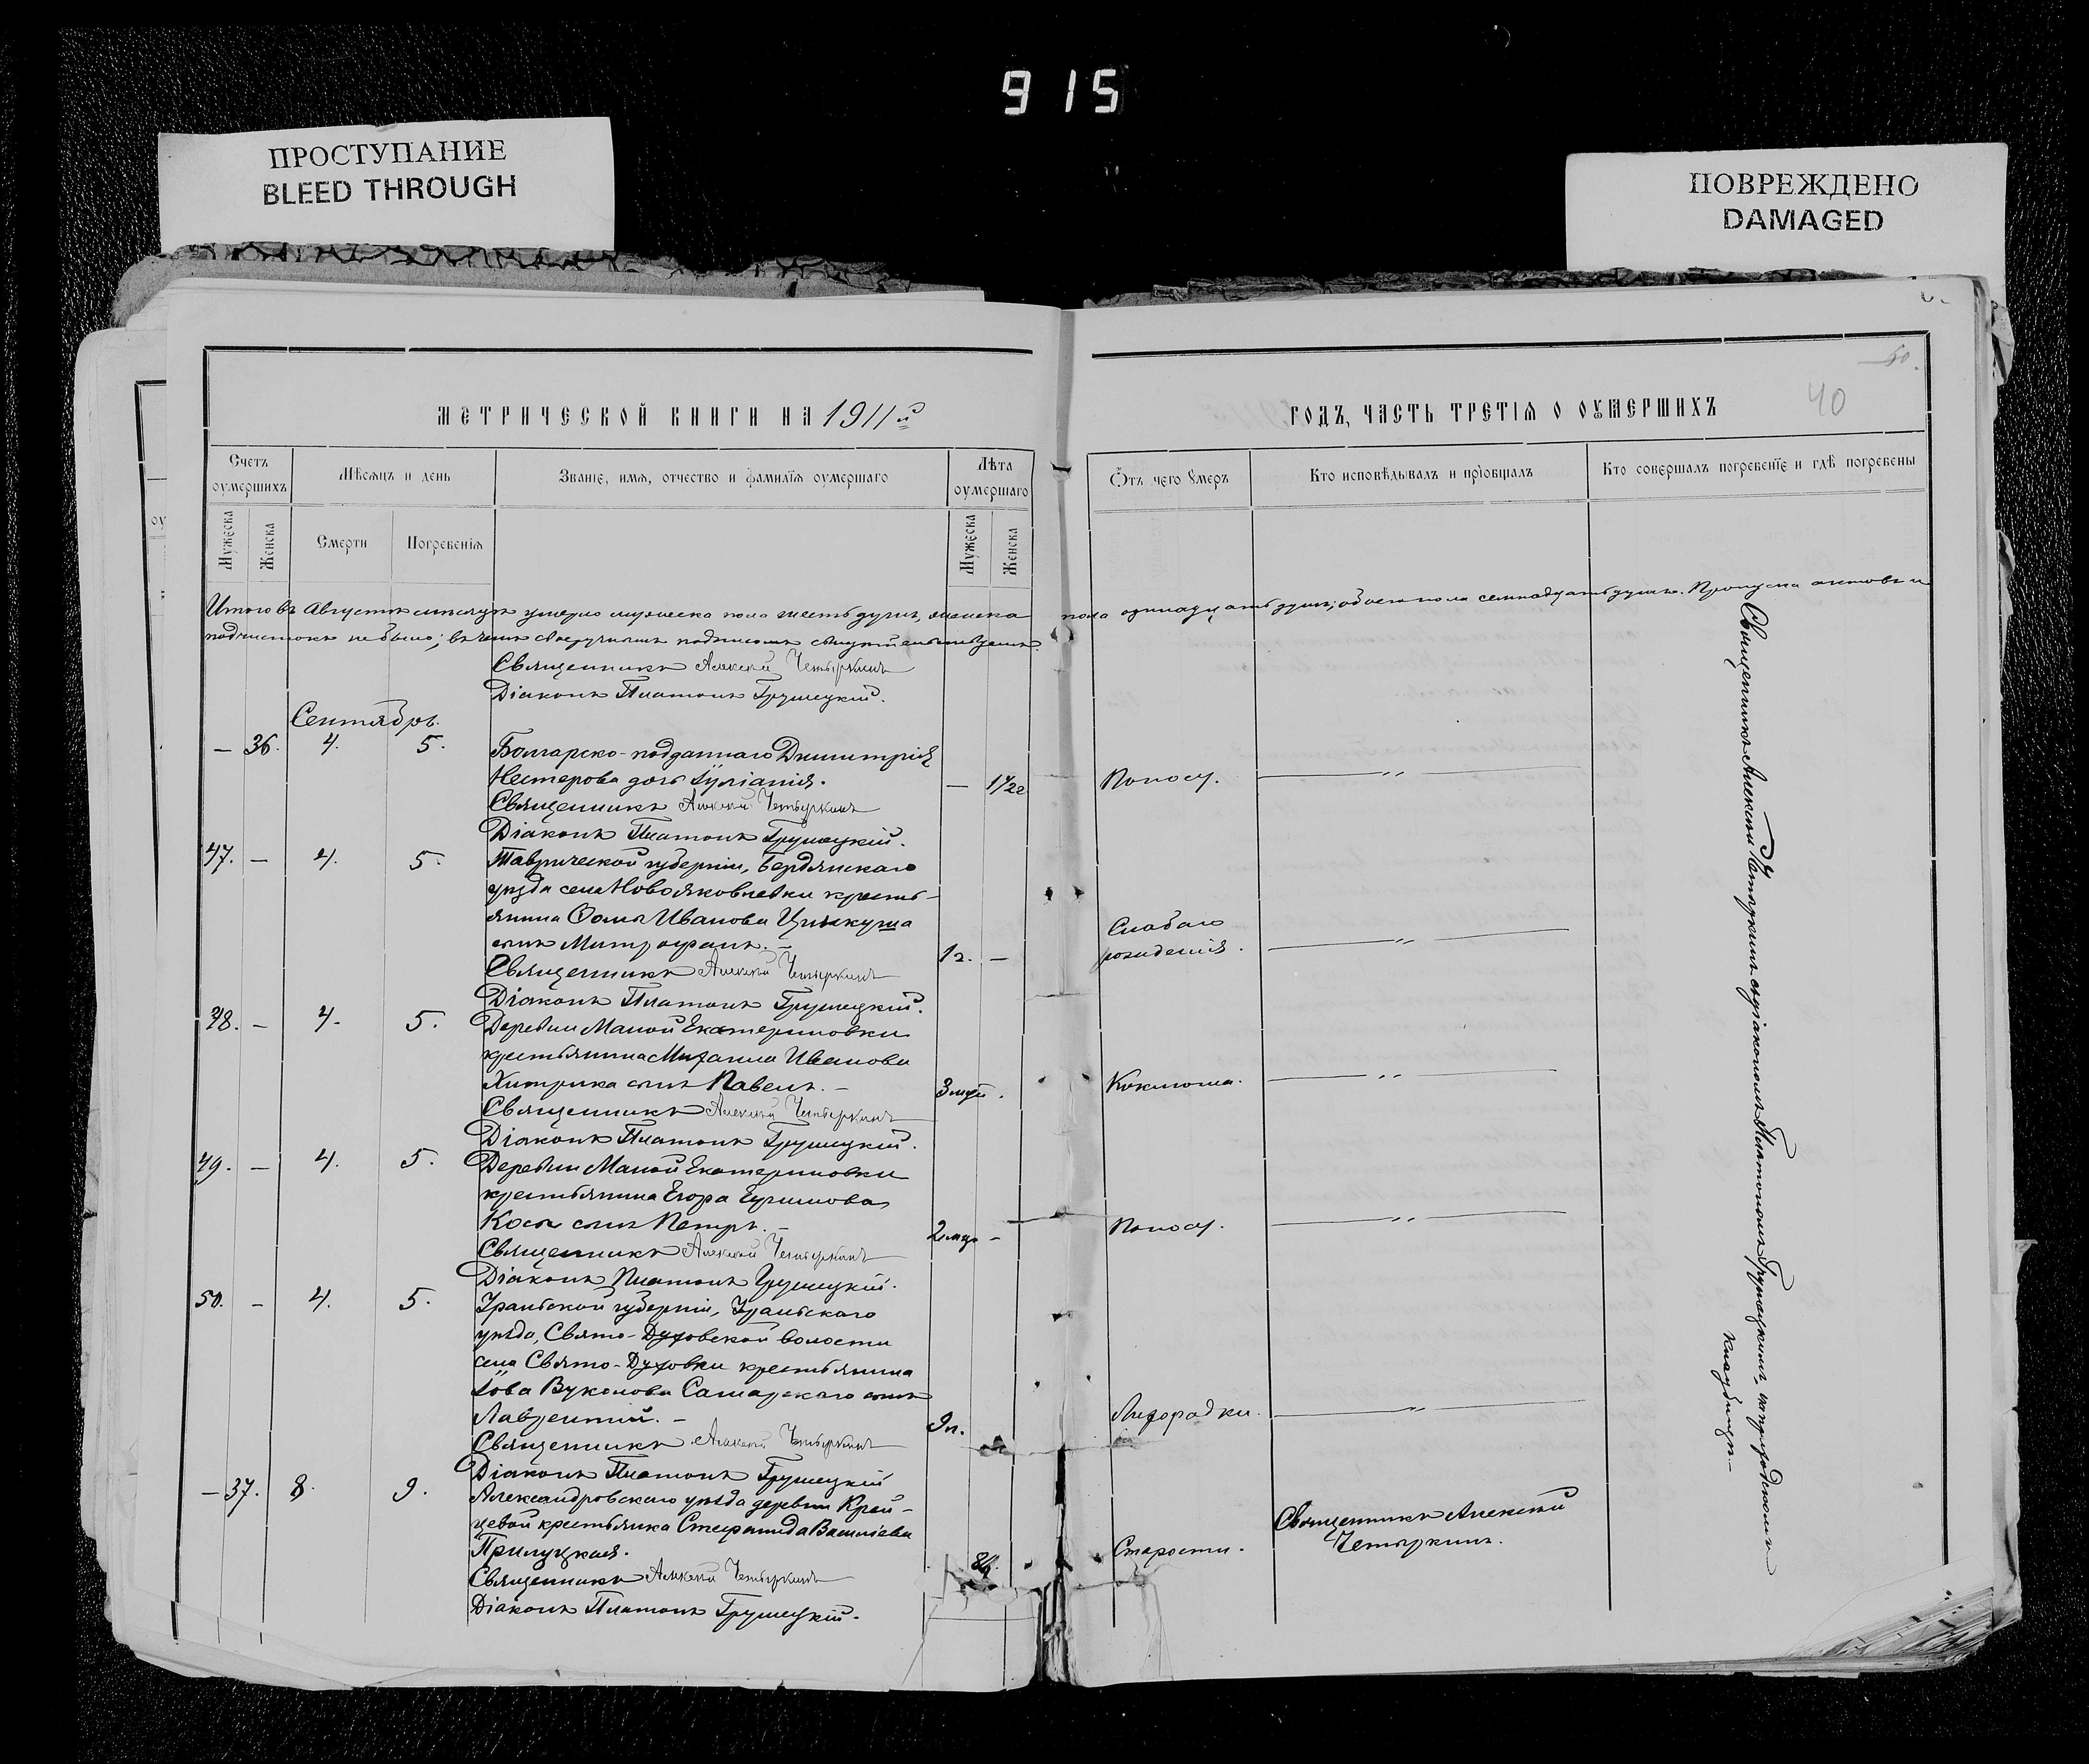 915
ПРОСТУПАНИЕ
BLEED THROUGH
ПОВРЕЖДЕНО
DAMAGED
50.
40
МЕТРИЧЕСКОЙ КНИГИ НА 1911й
ГОДЪ, ЧАСТЬ ТРЕТІѦ О ОУМЕРШИХЪ
Счетъ оумершихъ
Мѣсяцъ и день
Званіе, имя, отчество и фамилїя оумершаго
Лѣта оумершаго
Ѿтъ чего ѹмеръ
Кто исповѣдывалъ и прїобщалъ
Кто совершалъ погребенїе и гдѣ погребены
Мужеска
Женска
Смерти
Погребенїѧ
Мужеска
Женска
Итого въ Августѣ мѣсяцѣ умерло мужеска пола шесть душъ, женска пола одинадцать душъ; обоего пола семнадцать душъ. Пропуска актовъ и
подчистокъ не было; въ чемъ своеручнымъ подписомъ свидѣтельствуемъ
Священникъ Алексѣй Четыркинъ
Діаконъ Платонъ Грушецкій.
Сентябрь.
— 36. 4. 5. Болгарско-подданнаго Димитрія
Нестерова дочь Іуліанія. — 1 1/2 г Поносу. — „ —
Священникъ Алексѣй Четыркинъ
Діаконъ Платонъ Грушецкій.
47. — 4. 5. Таврической губерніи, Бердянскаго
уѣзда села Новояковлевки кресть-
янина Ѳомы Иванова
сынъ Митрофанъ. — 1 г. — Слабаго рожденія. — „ —
Священникъ Алексѣй Четыркинъ
Діаконъ Платонъ Грушецкій.
48. — 4. 5. Деревни Малой Екатериновки
крестьянина Михаила Иванова
Хитрика сынъ Павелъ. — 3 мѣс. Коклюша. — „ —
Священникъ Алексѣй Четыркинъ
Діаконъ Платонъ Грушецкій.
49. — 4. 5. Деревни Малой Екатериновки
крестьянина Егора
Косы сынъ Петръ. — 2 мѣс — Поносу. — „ —
Священникъ Алексѣй Четыркинъ
Діаконъ Платонъ Грушецкій.
50. — 4. 5. Уральской губерніи, Уральскаго
уѣзда, Свято-Духовской волости
села Свято-Духовки крестьянина
Іова Вуколова Самарскаго сынъ
Лаврентій. — 9 л. Лихорадки. — „ —
Священникъ Алексѣй Четыркинъ
Діаконъ Платонъ Грушецкій
— 37. 8. 9. Александровскаго уѣзда деревни Крей-
цевой крестьянка Стефанида Василіева
Прилуцкая. Старости. Священникъ Алексѣй
Четыркинъ.
Священникъ Алексѣй Четыркинъ
Діаконъ Платонъ Грушецкій.
Священникъ Алексѣй Четыркинъ съ діакономъ Платономъ Грушецкимъ на приходскомъ
кладбищѣ. —